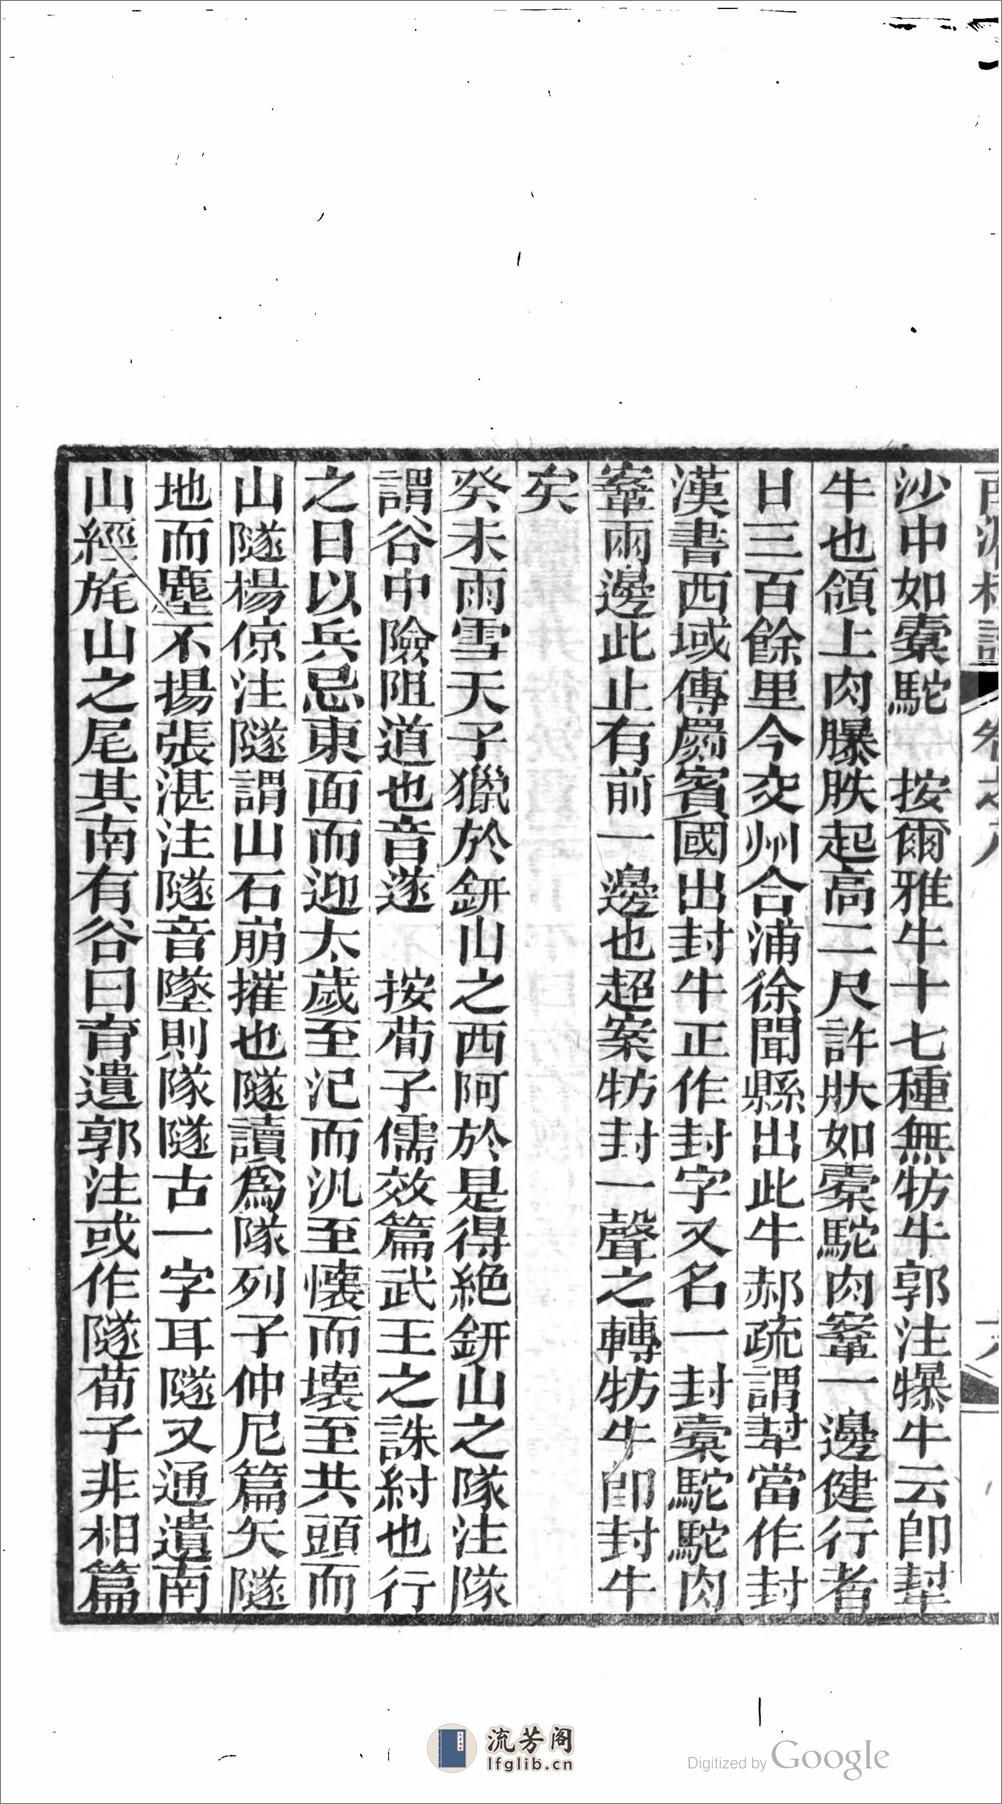 沙中如橐駝　按爾雅牛十七種無牥牛郭注犦牛云卽犎
牛也領上肉𦠿胅起高二尺許狀如橐駝肉鞌一邊健行者
日三百餘里今交州合浦徐聞縣出此牛郝疏謂犎當作封
漢書西域傳罽賓國出封牛正作封字又名一封橐駝駝肉
鞌兩邊此止有前一邊也超案牥封一聲之轉牥牛卽封牛
矣
癸未雨雪天子獵於鈃山之西阿於是得絶鈃山之隊注隊
謂谷中險阻道也音遂　按荀子儒效篇武王之誅紂也行
之日以兵忌東面而迎太歲至汜而汎至懷而壞至共頭而
山隧楊倞注隧謂山石崩摧也隧讀爲隊列子仲尼篇矢隧
地而塵不揚張湛注隧音墜則隊隧古一字耳隧又通遺南
山經旄山之尾其南有谷曰育遺郭注或作隧荀子非相篇
卷之八
流芳阁
lfglib.cn
Digitized by Google